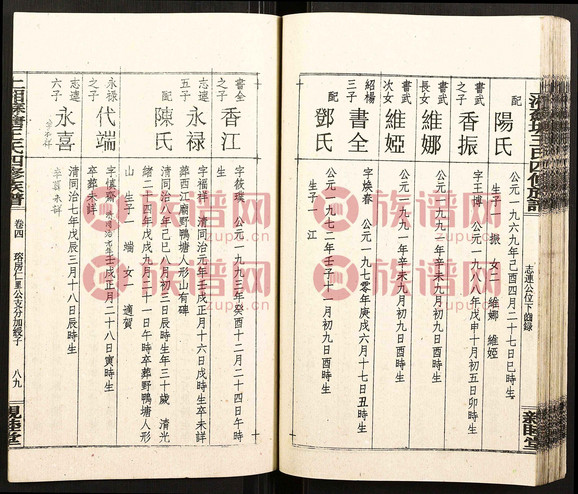 配 陽氏 公元一九六九年己酉四月二十七日巳時生
生子一 振 女二 維娜 維婭
書武之子 香振 字王博 公元一九九二年壬申十月初五日卯時生
書武長女 維娜 公元一九九一年辛未六月初九日酉時生
書武次女 維婭 公元一九九一年辛未六月初九日酉時生
紹楊三子 書全 字煥春 公元一九七〇年庚戌六月十七日丑時生
配 鄧氏 公元一九七二年壬子十一月初九日酉時生
生子一 江
志連公位下齒錄
新睦堂
書全之子 香江 字筱璞 公元一九九三年癸酉十二月二十四日午時生
志遠五子 永祿 字福祥 清同治元年壬戌正月十六日戌時生卒未詳
葬西江廟野鴨塘人形山有碑
配 陳氏 清同治八年己巳八月初三日辰時生年三十歲 清光緒二十四年戊戌九月二十一日午時卒葬野鴨塘人形山 生子一 端 女一 適賀
永祿之子 代端 字慎齋 壬戌正月二十八日寅時生
卒葬未詳
志遠六子 永喜 清同治七年戊辰三月十八日辰時生
卒葬未詳
四修族譜 卷四 八九
親睦堂
族谱网
zupu.cn